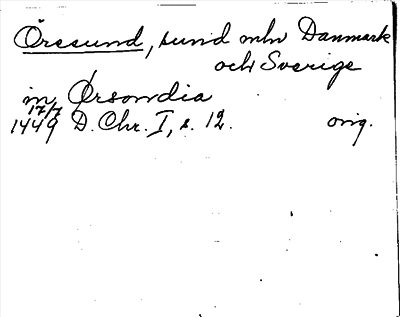 Öresund, sund mln Danmark
och Sverige
in Ørsondia
17/7
1449 D. Chr. I, s. 12. orig.